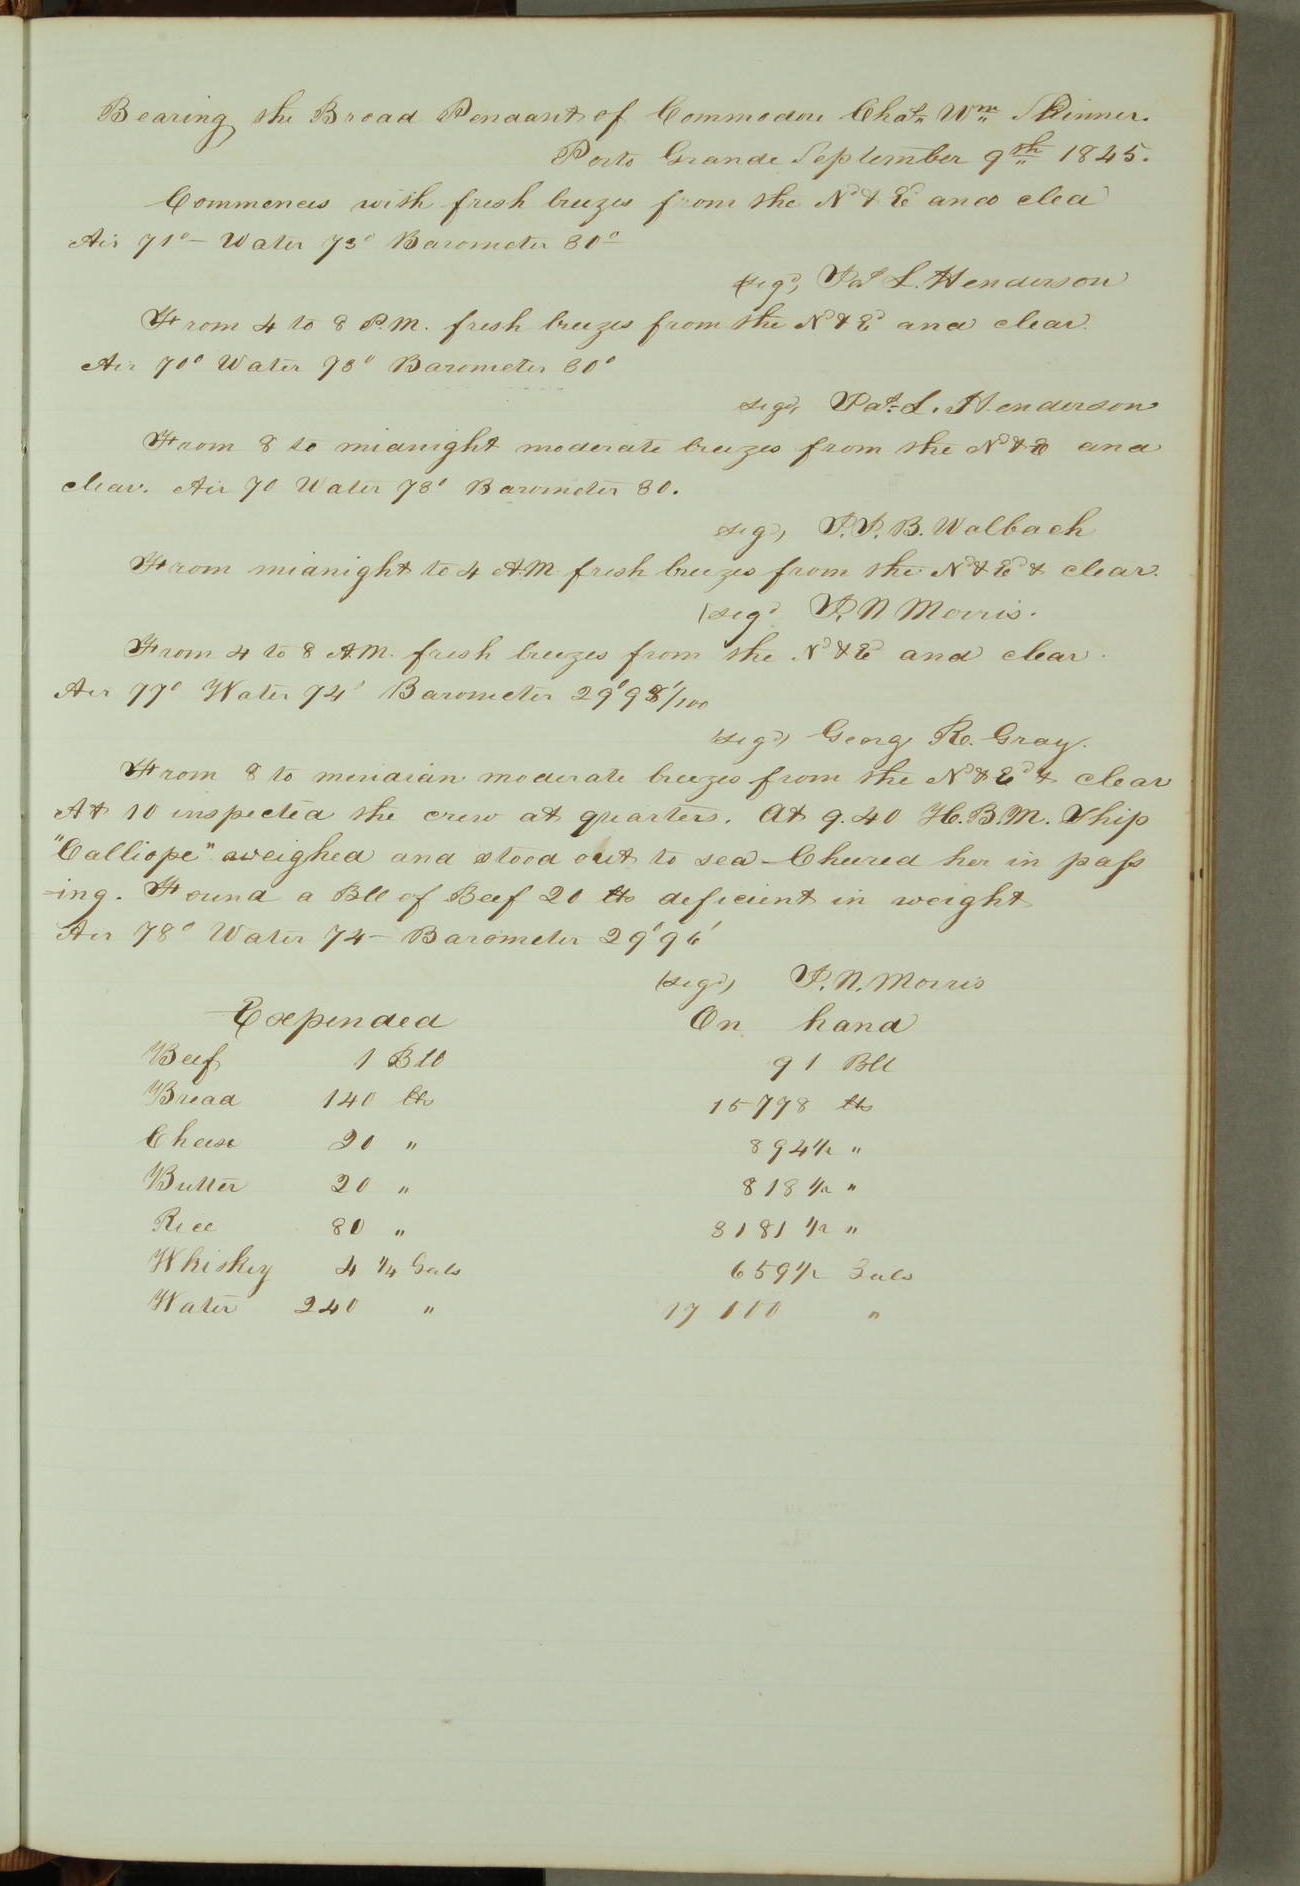 Bearing the Broad Pendant of Commodore Chas Wm Skinner.
Porto Grande September 9th 1845.
Commences with fresh breezes from the Nd & Ed and clea
Air 71° - Water 73° Barometer 30°
(sigd) Pat L. Henderson
From 4 to 8 P.M. fresh breezes from the Nd & Ed and clear.
Air 70° Water 73° Barometer 30°
sigd, Pat L. Henderson
From 8 to midnight moderate breezes from the Nd & Ed and
clear. Air 70 Water 73° Barometer 30.
sigd, J.J.B. Walbach
From midnight to 4 A.M fresh breezes from the Nd & Ed & clear.
(sigd J. N Morris.
From 4 to 8 A.M. fresh breezes from the Nd & Ed and clear.
Air 77° Water 74° Barometer 29°98/100
(sigd) Georg R. Gray.
From 8 to meridian moderate breezes from the Nd & Ed & clear
At 10 inspected the crew at quarters. At 9.40 H.B.M. Ship
"Calliope" weighed and stood out to sea - Cheered her in pass
-ing. Found a Bll of Beef 20 lbs deficient in weight
Air 78° Water 74 - Barometer 29°96'
(sigd) J. N. Morris
Expended On hand
Beef 1 Bll 91 Bll
Bread 140 lbs 15798 lbs
Cheese 20 " 894 1/2 "
Butter 20 " 818 1/2 "
Rice 30 " 3181 1/2 "
Whiskey 4 1/4 Gals 659 1/2 Gals
Water 240 " 17 100 "